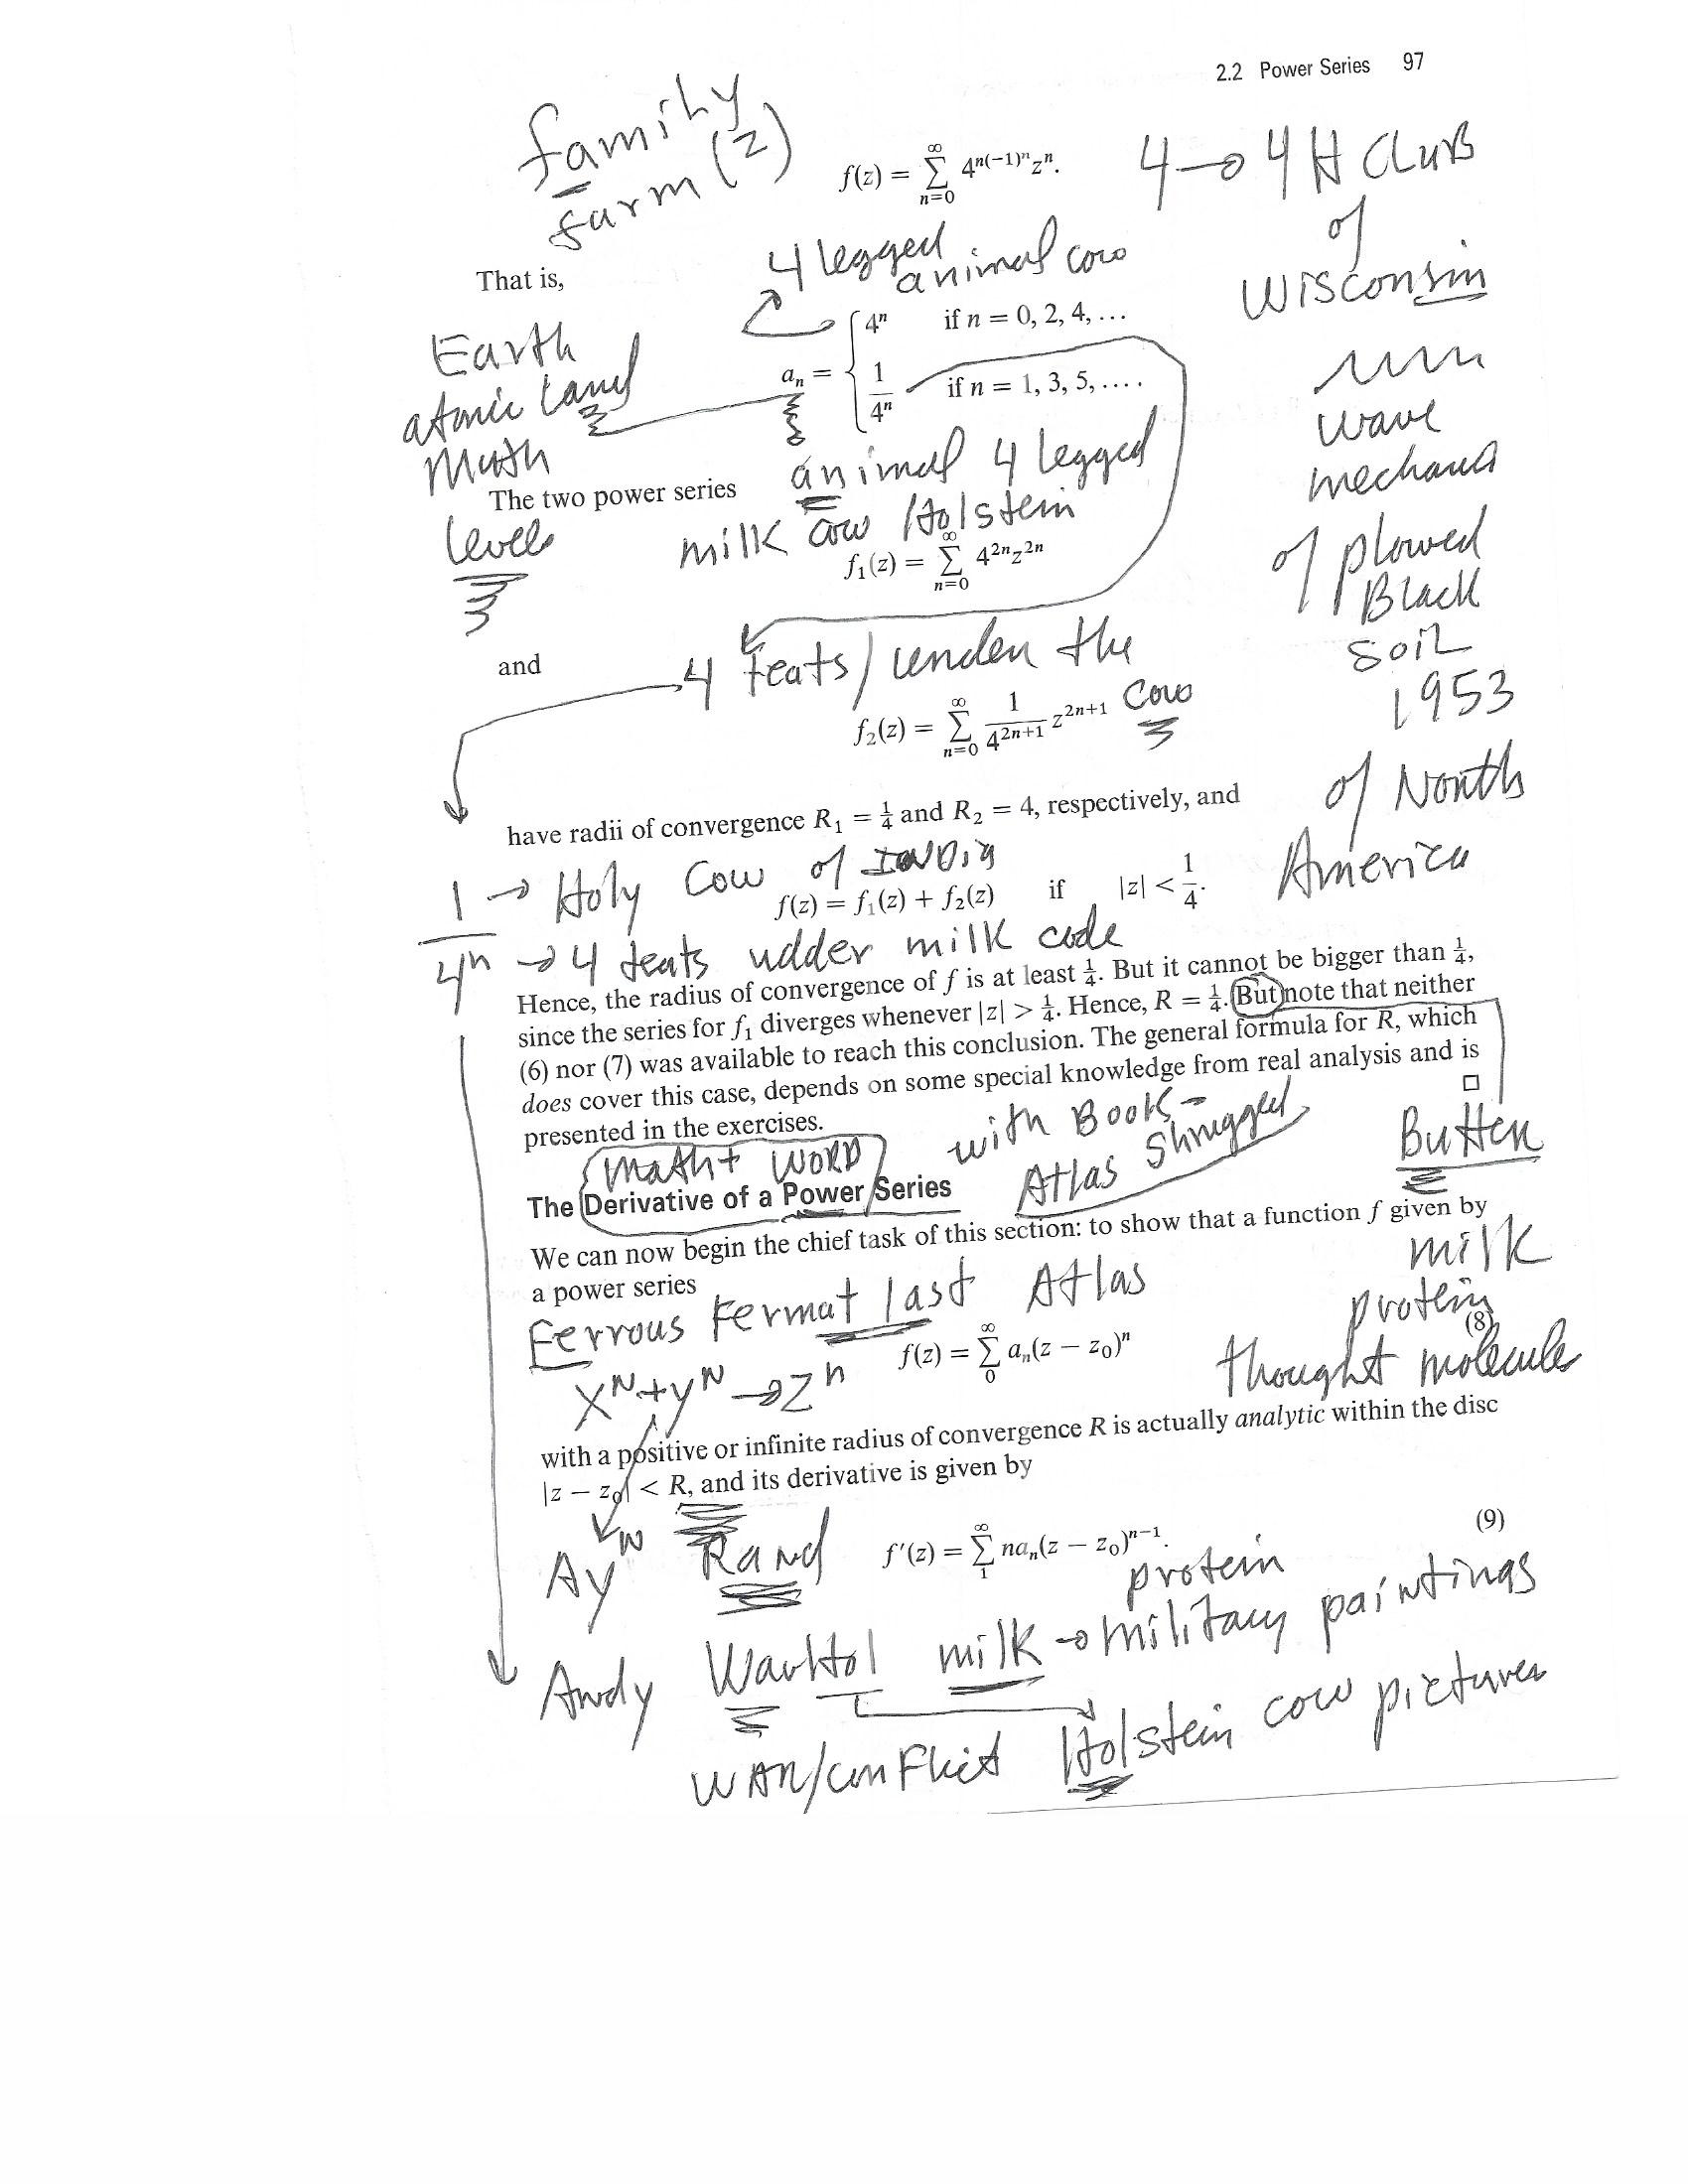 2.2 Power Series 97
family
farm (z)
f(z) = ∑_{n=0}^{∞} 4^{n(-1)^n} z^n.
4→ 4H Clubs
of
Wisconsin
wave
of plowed
Black
soil
1953
of North
America
That is,
4 legged
animal cow
Earth
atomic land
Math
level
a_n = { 4^n if n = 0, 2, 4, …
1/4^n if n = 1, 3, 5, ….
animal 4 legged
The two power series
milk cow Holstein
f_1(z) = ∑_{n=0}^{∞} 4^{2n} z^{2n}
and
4 teats/ under the
cow
f_2(z) = ∑_{n=0}^{∞} 1/4^{2n+1} z^{2n+1}
have radii of convergence R_1 = 1/4 and R_2 = 4, respectively, and
1 → Holy Cow of India
f(z) = f_1(z) + f_2(z) if |z| < 1/4.
4^n → 4 teats udder milk code
Hence, the radius of convergence of f is at least 1/4. But it cannot be bigger than 1/4,
since the series for f_1 diverges whenever |z| > 1/4. Hence, R = 1/4. But note that neither
(6) nor (7) was available to reach this conclusion. The general formula for R, which
does cover this case, depends on some special knowledge from real analysis and is
presented in the exercises. □
with Book-
Atlas Shrugged
Butter
milk
protein
thought molecule
Math + WORD
The Derivative of a Power Series
We can now begin the chief task of this section: to show that a function f given by
a power series
Ferrous Fermat last Atlas
f(z) = ∑_{0}^{∞} a_n(z − z_0)^n (8)
X^N + y^N → Z^n
with a positive or infinite radius of convergence R is actually analytic within the disc
|z − z_0| < R, and its derivative is given by
Ayn Rand
f'(z) = ∑_{1}^{∞} na_n(z − z_0)^{n−1}. (9)
protein
Andy WarHol milk → military paintings
WAR/conflict Holstein cow pictures